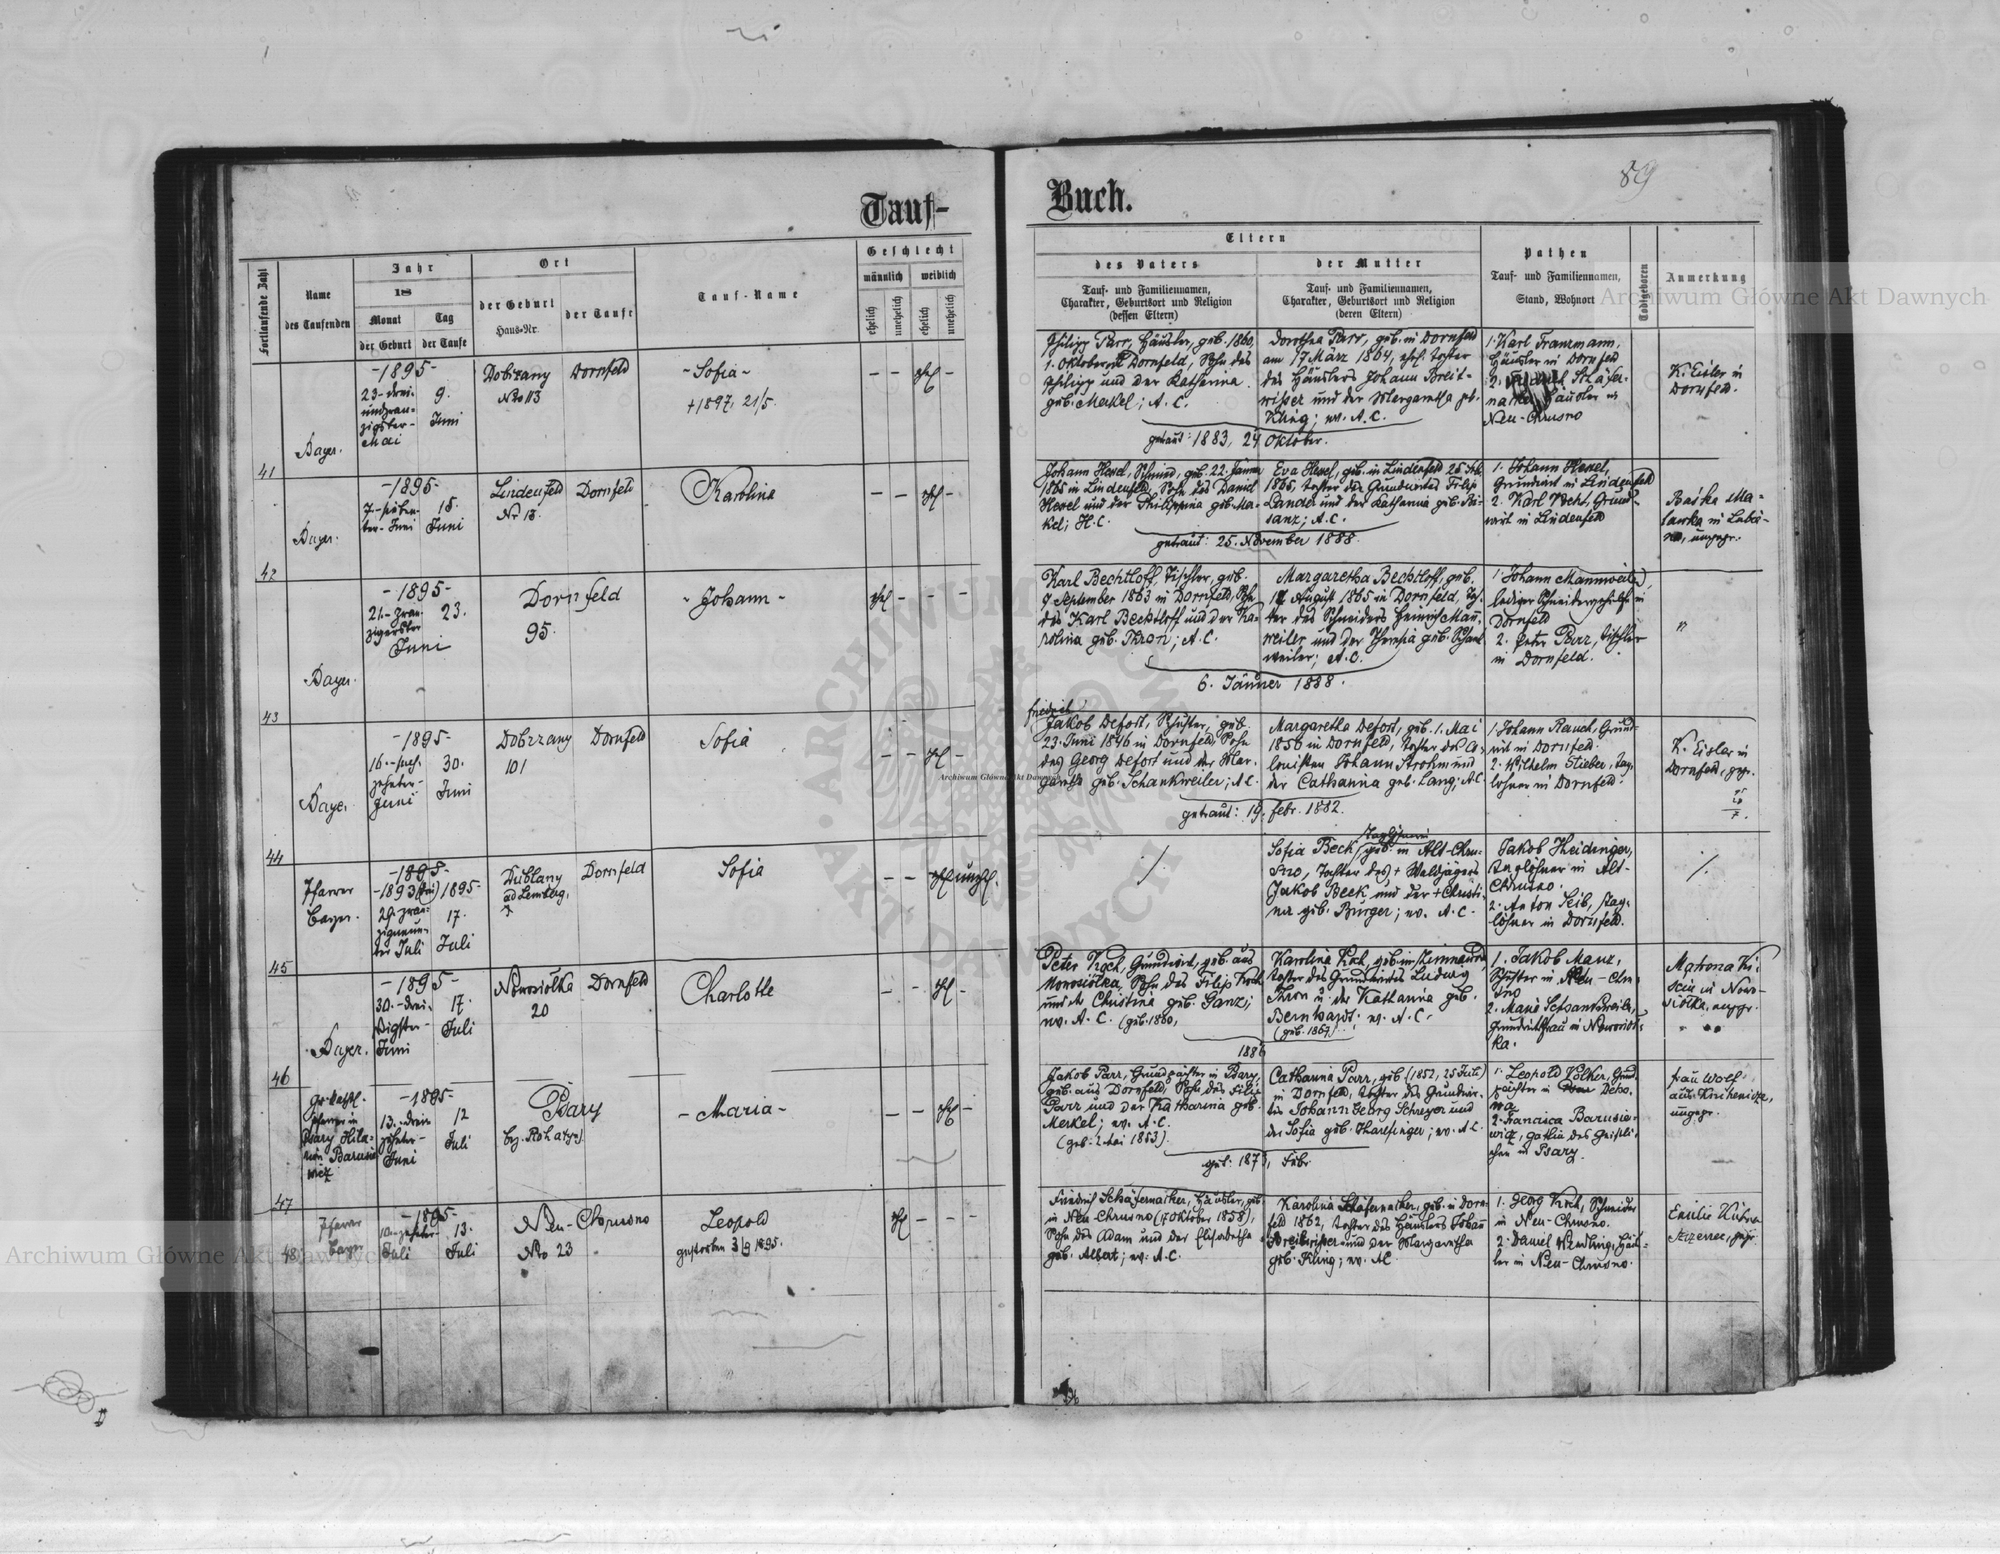 89
Tauf-Buch.
Fortlaufende Zahl
Name
des Taufenden
Jahr
18
Monat
der Geburt
Tag
der Taufe
Ort
der Geburt
Haus-Nr.
der Taufe
Tauf-Name
Geschlecht
männlich
weiblich
ehelich
unehelich
ehelich
unehelich
Eltern
des Vaters
Tauf- und Familiennamen,
Charakter, Geburtsort und Religion
(dessen Eltern)
der Mutter
Tauf- und Familiennamen,
Charakter, Geburtsort und Religion
(deren Eltern)
Pathen
Tauf- und Familiennamen,
Stand, Wohnort
Todtgeboren
Anmerkung
41
Bayer.
-1895-
23- drei-
undzwan-
zigster-
Mai
9.
Juni
Dobrzany
Nro 113
Dornfeld
-Sofia-
+1897, 21/5.
Philipp Parr, Häusler, geb. 1860,
1. Oktober in Dornfeld, Sohn des
Philipp und der Katharina
geb. Merkel; A. C.
Dorothea Parr, geb. in Dornfeld
am 17 März 1864, Tochter
des Häuslers Johann Breit-
wißer und der Margaretha geb.
Kling; ev. A. C.
getraut: 1883, 24 Oktober.
1. Karl Franzmann,
Häusler in Dornfeld
2. Friedrich Schäfer-
naker Häusler in
Neu-Chrusno
K. Eisler in
Dornfeld.
42
Bayer.
-1895-
7.- sieben-
ter- Juni
15.
Juni
Lindenfeld
Nr 13.
Dornfeld
Karolina
Johann Hexel, Schmied, geb. 22. Jänner
1865 in Lindenfeld, Sohn des Daniel
Hexel und der Philippina geb. Me-
kel; H. C.
Eva Hexel, geb. in Lindenfeld 25
1865, Tochter des Grundwirtes Filip
Lander und der Katharina geb.
getraut: 25. November 1888.
1. Johann Hexel,
Grundwirt in Lindenfeld
2. Karl Grund-
wirt in Lindenfeld
43
Bayer.
-1895-
21.- zwan-
zigerster
Juni
23.
Dornfeld
95.
- Johann -
Karl Bechtloff, Tischler, geb.
9 September 1863 in Dornfeld, Sohn
des Karl Bechtloff und der Ka-
rolina geb. Thron; A. C.
Margaretha Bechtloff, geb.
August 1865 in Dornfeld, Toch-
ter des Schneiders Heinrich Mann-
weiler und der Theresia geb. Schank-
weiler; A. C.
6. Jänner 1888.
1. Johann Mannweiler,
lediger Schneidergehilfe in
Dornfeld
2. Peter Parr, Tischler
in Dornfeld.
"
44
Bayer.
-1895-
16.- sech-
zehnter-
Juni
30.
Juni
Dobrzany
101
Dornfeld
Sofia
Friedrich
Jakob Defort, Schuster, geb.
23. Juni 1846 in Dornfeld, Sohn
des Georg Defort und der Mar-
garetha geb. Schankweiler; A. C.
Margaretha Defort, geb. 1. Mai
1856 in Dornfeld, Tochter des Co-
lonisten Johann Strohm und
der Catharina geb. Lang; A. C.
getraut: 19. Febr. 1882.
1. Johann Rauch, Grund-
wirt in Dornfeld.
2. Wilhelm Stieber, Tag-
löhner in Dornfeld.
K. Eisler in
Dornfeld, gepr.
45
Pfarrer
Bayer.
-1893 1895-
29. zwan-
zigneun-
ter Juli
17.
Juli
Dublany
ad Lemberg.
Dornfeld
Sofia
./.
Taglöhnerin
Sofia Beck, geb. in Alt-Chru-
sno, Tochter des + Waldjägers
Jakob Beck und der + Christi-
na geb. Burger; ev. A. C.
Jakob Heidinger,
Taglöhner in Alt-
Chrusno.
2. Anton Seib, Tag-
löhner in Dornfeld.
./.
46
Bayer.
-1895-
30.- drei-
ßigster-
Juni
17.
Juli
Nowosiolka
20
Dornfeld
Charlotte
Peter Koch, Grundwirt, geb. aus
Nowosiolka, Sohn des Filip Koch
und der Christina geb. Ganz;
ev. A. C. (geb. 1860,
Karolina Koch, geb. in
Tochter des Grundwirtes Ludwig
Thron u. der Katharina geb.
Bernhardt; ev. A. C.
(geb. 1867)
1886
1. Jakob Manz,
Schuster in Neu-Chru-
sno
2. Marie Schankweiler,
Grundwirtsfrau in Nowosiol-
ka.
Matrona
in Nowo-
siolka, ungepr.
47
Pfarrer in
Psary Hila-
rion Barusie-
wicz
-1895-
13.- drei-
zehnter-
Juni
12
Juli
Psary
bz. Rohatyn
- Maria -
Jakob Parr, Grundpächter in Psary,
geb. aus Dornfeld, Sohn des Filip
Parr und der Katharina geb.
Merkel; ev. A. C.
(geb. 2 Mai 1853).
Catharina Parr, geb. (1852, 25 Juli)
in Dornfeld, Tochter des Grundwir-
tes Johann Georg Schreyer und
der Sofia geb. Tharesinger; ev. A. C.
getr: 1873, Febr.
1. Leopold Völker, Grund-
pächter in
2. Francisca Barusie-
wicz, Gattin des Geistli-
chen in Psary.
Frau Wolf
aus
ungepr.
48
Pfarrer
Bayer
-1895-
10.- zehnter-
Juli
13.
Juli
Neu-Chrusno
Nro 23
Leopold
gestorben 3/9 1895.
Friedrich Schäfernaker, Häusler, geb.
in Neu-Chrusno (7 Oktober 1858),
Sohn des Adam und der Elisabetha
geb. Albert; ev. A. C.
Karolina Schäfernaker, geb. in Dorn-
feld 1862, Tochter des Häuslers Johann
Breitwißer und der Margaretha
geb. Kling; ev. A. C.
1. Georg Koch, Schmieder
in Neu-Chrusno.
2. Daniel Wendling, Häus-
ler in Neu-Chrusno.
Emilie Kühner
Szczerzec, gepr.
Archiwum Główne Akt Dawnych
Archiwum Główne Akt Dawnych
Archiwum Główne Akt Dawnych
ARCHIWUM GŁÓWNE AKT DAWNYCH